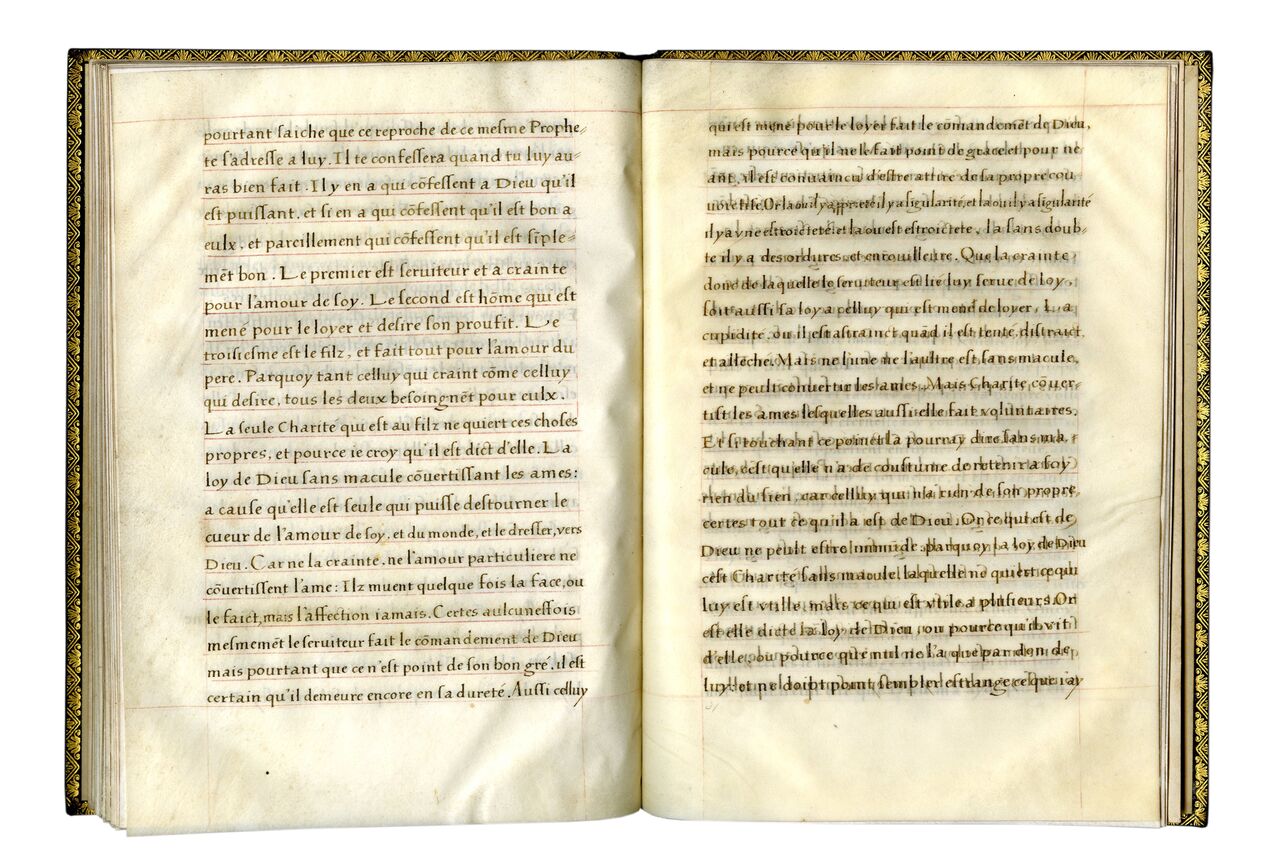 pourtant ſaiche que ce reproche de ce meſme Prophe⸗
te ſ'adreſſe a luy. Il te confeſſera quand tu luy au⸗
ras bien fait. Il y en a qui cõfeſſent a Dieu qu'il
eſt puiſſant, et ſi en a qui cõfeſſent qu'il eſt bon a
eulx, et pareillement qui cõfeſſent qu'il eſt ſĩple⸗
mẽt bon. Le premier eſt ſeruiteur et a crainte
pour l'amour de ſoy. Le ſecond eſt hõme qui eſt
mené pour le loyer et deſire ſon proufit. Le
troiſieſme eſt le filz, et fait tout pour l'amour du
pere. Parquoy tant celluy qui craint cõme celluy
qui deſire, tous les deux beſoingnẽt pour eulx.
La ſeule Charité qui eſt au filz ne quiert ces choſes
propres, et pource ie croy qu'il eſt dict d'elle. La
loy de Dieu ſans macule cõuertiſſant les ames:
a cauſe qu'elle eſt ſeule qui puiſſe deſtourner le
cueur de l'amour de ſoy, et du monde, et le dreſſer, vers
Dieu. Car ne la crainte, ne l'amour particuliere ne
cõuertiſſent l'ame: Ilz muent quelque fois la face, ou
le faict, mais l'affection iamais. Certes aulcuneſfois
meſmemẽt le ſeruiteur fait le cõmandement de Dieu
mais pourtant que ce n'eſt point de ſon bon gré, il eſt
certain qu'il demeure encore en ſa dureté. Auſſi celluy
qui eſt mené pour le loyer fait le cõmandemẽt de Dieu,
mais pource qu'il ne le fait point de grace et pour nẽ
ãnt, il eſt conuaincu d'eſtre attire de ſa propre cou
uoytiſe. Or la ou il y a il y a ſigularité, et la ou il y a ſigularité
il y a vne eſtroictete: et la ou eſt eſtroictete, la ſans doub⸗
te il y a des ordures, et enrouilleure. Que la crainte
donc de laquelle le ſeruiteur eſt lié luy ſerue de loy,
ſoit auſſi ſa loy a celluy qui eſt mené de loyer, La
cupidité, ou il eſt aſtrainct quãd il eſt tente, diſtraict,
et alleche. Mais ne l'une ne l'aultre eſt ſans macule,
et ne peult conuertir les ames. Mais Charite cõuer⸗
tiſt les ames leſquelles auſſi elle fait voluntaires.
Et ſi touchant ce poinct la pourray dire ſans ma⸗
cule, c'eſt qu'elle n'a de couſtume de retenir a ſoy
rien du ſien, car celluy qui n'a rien de ſon propre,
certes tout ce qu'il a eſt de Dieu. Or ce qui eſt de
Dieu ne peult eſtre immũde. parquoy La loy de Dieu
c'eſt Charité ſans macule, laquelle ne quiert ce qui
luy eſt vtille, mais ce qui eſt vtile a pluſieurs. Or
eſt elle dicte la loy de Dieu, ou pource qu'il vit
d'elle, ou pource que nul ne l'a que par don de
luy: et ne doibt point ſembler eſtrange ce que i'ay